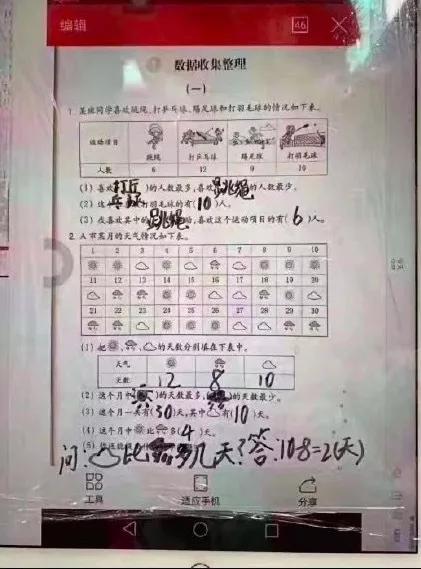 编辑
46
数据收集整理
(一)
1. 某班同学喜欢跳绳、打乒乓球、踢足球和打羽毛球的情况如下表。
运动项目 跳绳 打乒乓球 踢足球 打羽毛球
人数 6 12 9 10
(1) 喜欢(打乒乓球)的人数最多,喜欢(跳绳)的人数最少。
(2) 这 打羽毛球的有(10)人。
(3) 我喜欢其中的(跳绳)活动,喜欢这个运动项目的有(6)人。
2. 某月的天气情况如下表。
1 2 3 4 5 6 7 8 9 10
11 12 13 14 15 16 17 18 19 20
21 22 23 24 25 26 27 28 29 30
(1) 把 、 、 的天数分别填在下表中。
天气
天数 12 8 10
(2) 这个月中( )的天数最多,( )的天数最少。
(3) 这个月一共有(30)天,其中 有(10)天。
(4) 这个月中 比 多(4)天。
(5) 你还能提
问: 比 多几天?答:10-8=2(天)
工具 适应手机 分享